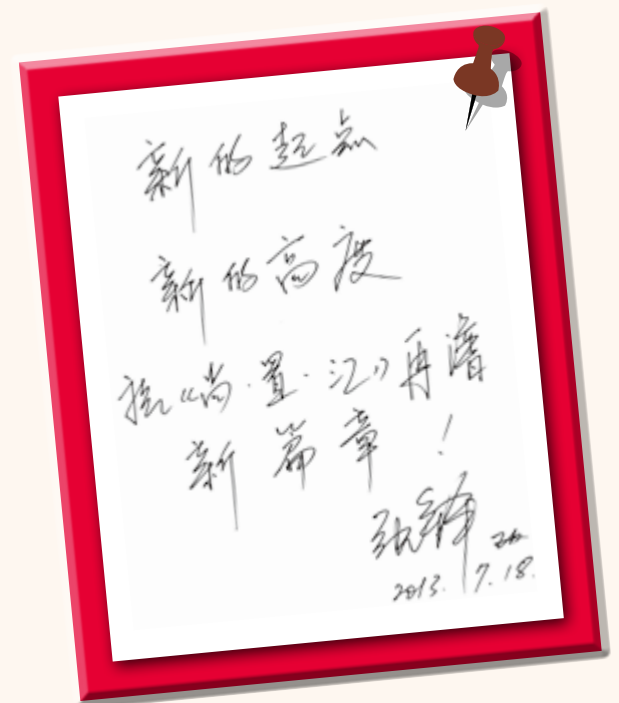 新的起点
新的高度
祝《尚·置·汇》再谱
新篇章!
张
2013.7.18.